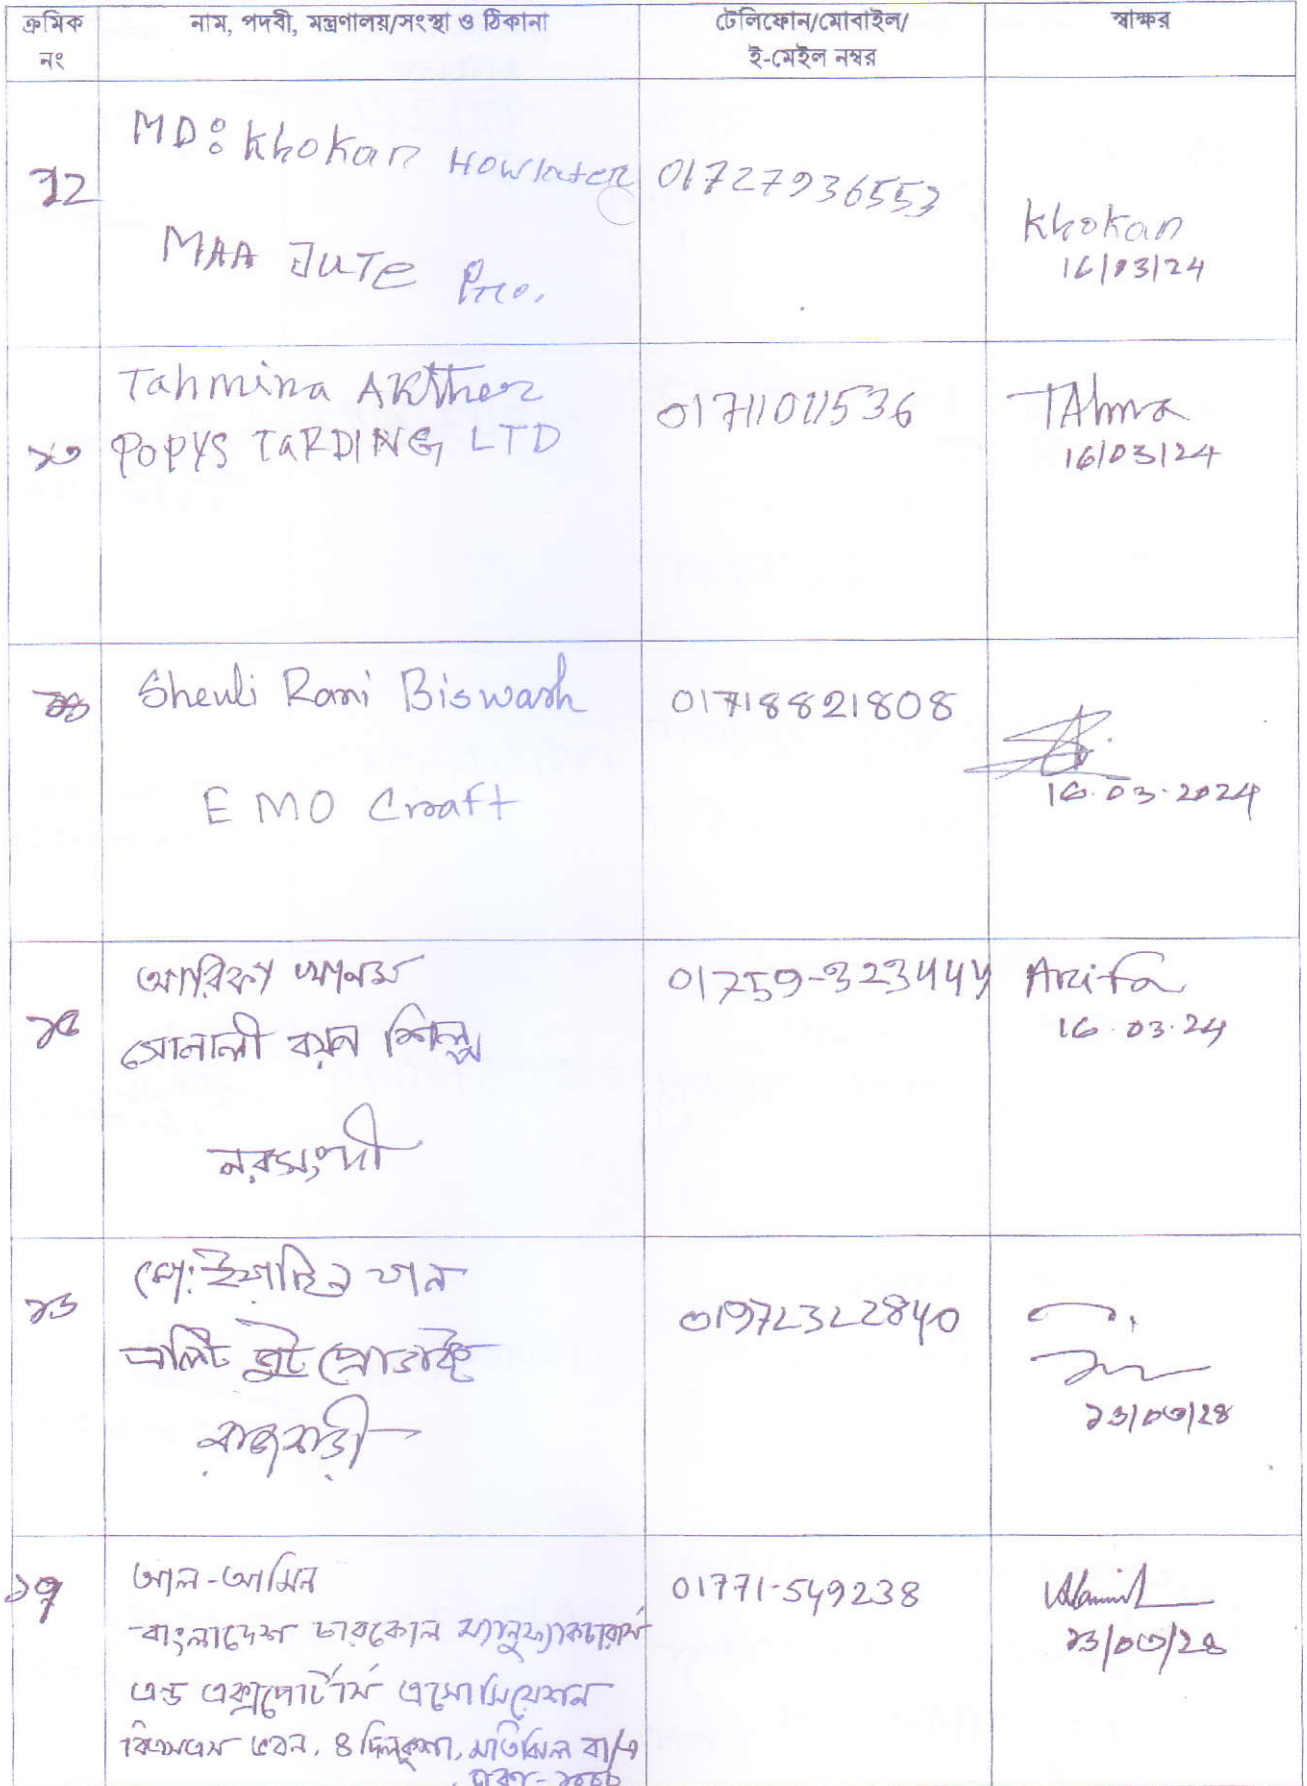 ক্রমিক নং
নাম, পদবী, মন্ত্রণালয়/সংস্থা ও ঠিকানা
টেলিফোন/মোবাইল/
ই-মেইল নম্বর
স্বাক্ষর
১২
MD: Khokan Howlater
MAA JUTE Pro.
01727936553
Khokan
16/03/24
১৩
Tahmina AKther
POPYS TaRDING LTD
01711011536
TAhmna
16/03/24
১৪
Sheuli Rani Biswash
EMO Craaft
01718821808
16.03.2024
১৫
আরিফা খানম
সোনালী বয়ন শিল্প
নরসংদী
01759-323444
Arifa
16.03.24
১৬
মো: ইয়াছিন খান
এলিট জুট প্রোডাক্ট
রাজবাড়ী
01972322840
১৬/০৩/২৪
১৭
আল-আমিন
বাংলাদেশ চারকোল ম্যানুফ্যাকচারার্স
এন্ড এক্সপোর্টার্স এসোসিয়েশন
বিএসএস ভবন, ৪ দিলকুশা, মতিঝিল বা/এ
ঢাকা-১০০০
01771-549238
Alamin
১৬/০৩/২৪